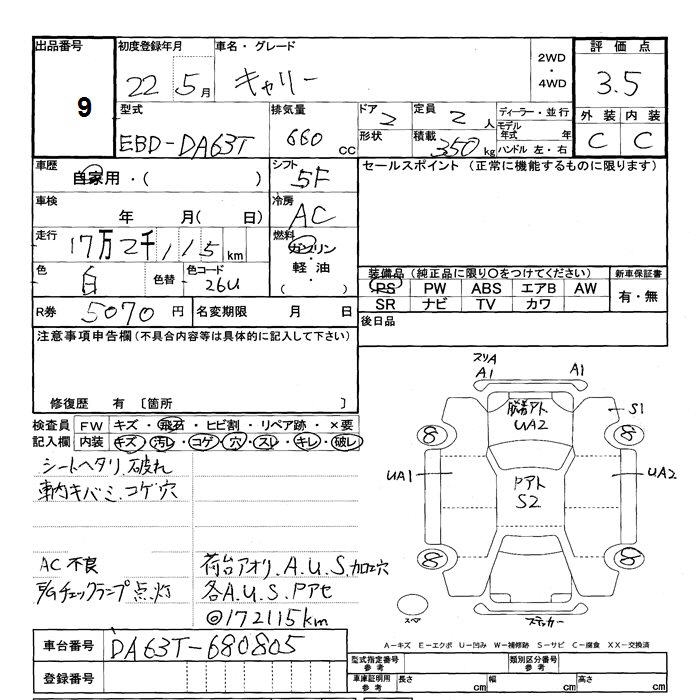 出品番号
9
初度登録年月
22 5月
車名・グレード
キャリー
2WD
・
4WD
評価点
3.5
外装 内装
C C
型式
EBD-DA63T
排気量
660 CC
ドア 2
形状
定員 2 人
積載 350 kg
ディーラー・並行
モデル年式 年
ハンドル 左・右
車歴
自家用・( )
シフト
5F
セールスポイント (正常に機能するものに限ります)
車検
年 月( 日)
冷房
AC
走行
17万2千115km
燃料
ガソリン
・
軽油
( )
色
白
色替
色コード
26U
装備品 (純正品に限り○をつけてください)
PS PW ABS エアB AW
SR ナビ TV カワ
新車保証書
有・無
R券 5070 円
名変期限 月 日
後日品
注意事項申告欄 (不具合内容等は具体的に記入して下さい)
修復歴 有 〔箇所 〕
検査員 FW キズ・飛石・ヒビ割・リペア跡・×要
記入欄 内装 キズ・汚レ・コゲ・穴・スレ・キレ・破レ
シートヘタリ、破れ
車内キバミ、コゲ穴
AC不良
E/Gチェックランプ点灯
荷台アオリ、A.U.S.加工穴
各A.U.S.Pアセ
◎172115km
スリA
A1 A1
脱着アト
UA2
S1
8 8
UA1
Pアト
S2
UA2
8 8
スペア
ステッカー
A－キズ E－エクボ U－凹み W－補修跡 S－サビ C－腐食 XX－交換済
車台番号 DA63T-680805
登録番号
型式指定番号
参考
類別区分番号
参考
車庫証明用
参考
長さ cm 幅 cm 高さ cm